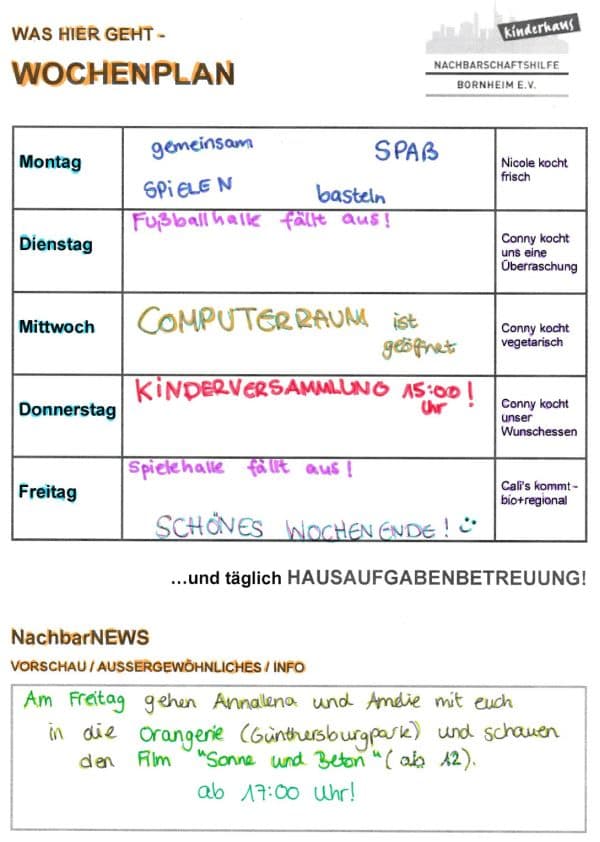 WAS HIER GEHT -
WOCHENPLAN
kinderhaus
NACHBARSCHAFTSHILFE
BORNHEIM E.V.
Montag
gemeinsam SPAß
SPiELEN basteln
Nicole kocht
frisch
Dienstag
Fußballhalle fällt aus!
Conny kocht
uns eine
Überraschung
Mittwoch
COMPUTERRAUM ist
geöffnet
Conny kocht
vegetarisch
Donnerstag
KiNDERVERSAMMLUNG 15:00!
Uhr
Conny kocht
unser
Wunschessen
Freitag
Spielehalle fällt aus!
SCHÖNES WOCHENENDE!
Cali's kommt -
bio+regional
...und täglich HAUSAUFGABENBETREUUNG!
NachbarNEWS
VORSCHAU / AUSSERGEWÖHNLICHES / INFO
Am Freitag gehen Annalena und Amelie mit euch
in die Orangerie (Günthersburgpark) und schauen
den Film "Sonne und Beton" (ab 12).
ab 17:00 Uhr!